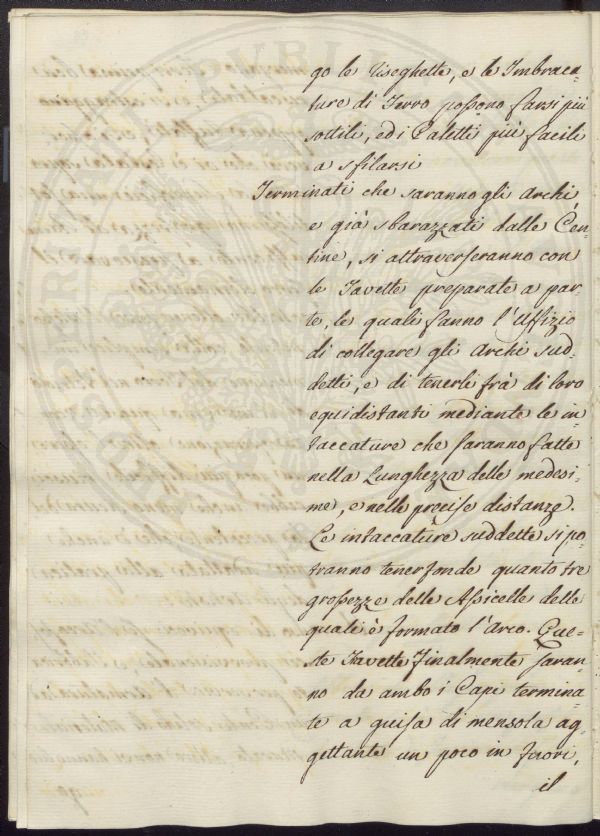 go le Viseghette, e le Imbraca=
ture di Ferro possono farsi più
sottili, ed i Paletti più facili
a sfilarsi
Terminati che saranno gli Archi,
e già sbarazzati dalle Cen=
tine, si attraverseranno con
le Tavette preparate a par=
te, le quali fanno l'Uffizio
di collegare gli Archi sud=
detti, e di tenerli frà di loro
equidistanti mediante le in=
taccature che saranno fatte
nella Lunghezza delle medesi=
me, e nelle precise distanze.
Le intaccature suddette si po=
tranno tener fonde quanto tre
grossezze delle Assicelle delle
quali è formato l'Arco. Que=
ste Tavette finalmente saran=
no da ambo i Capi termina=
te a guisa di mensola ag=
gettante un poco in fuori,
il